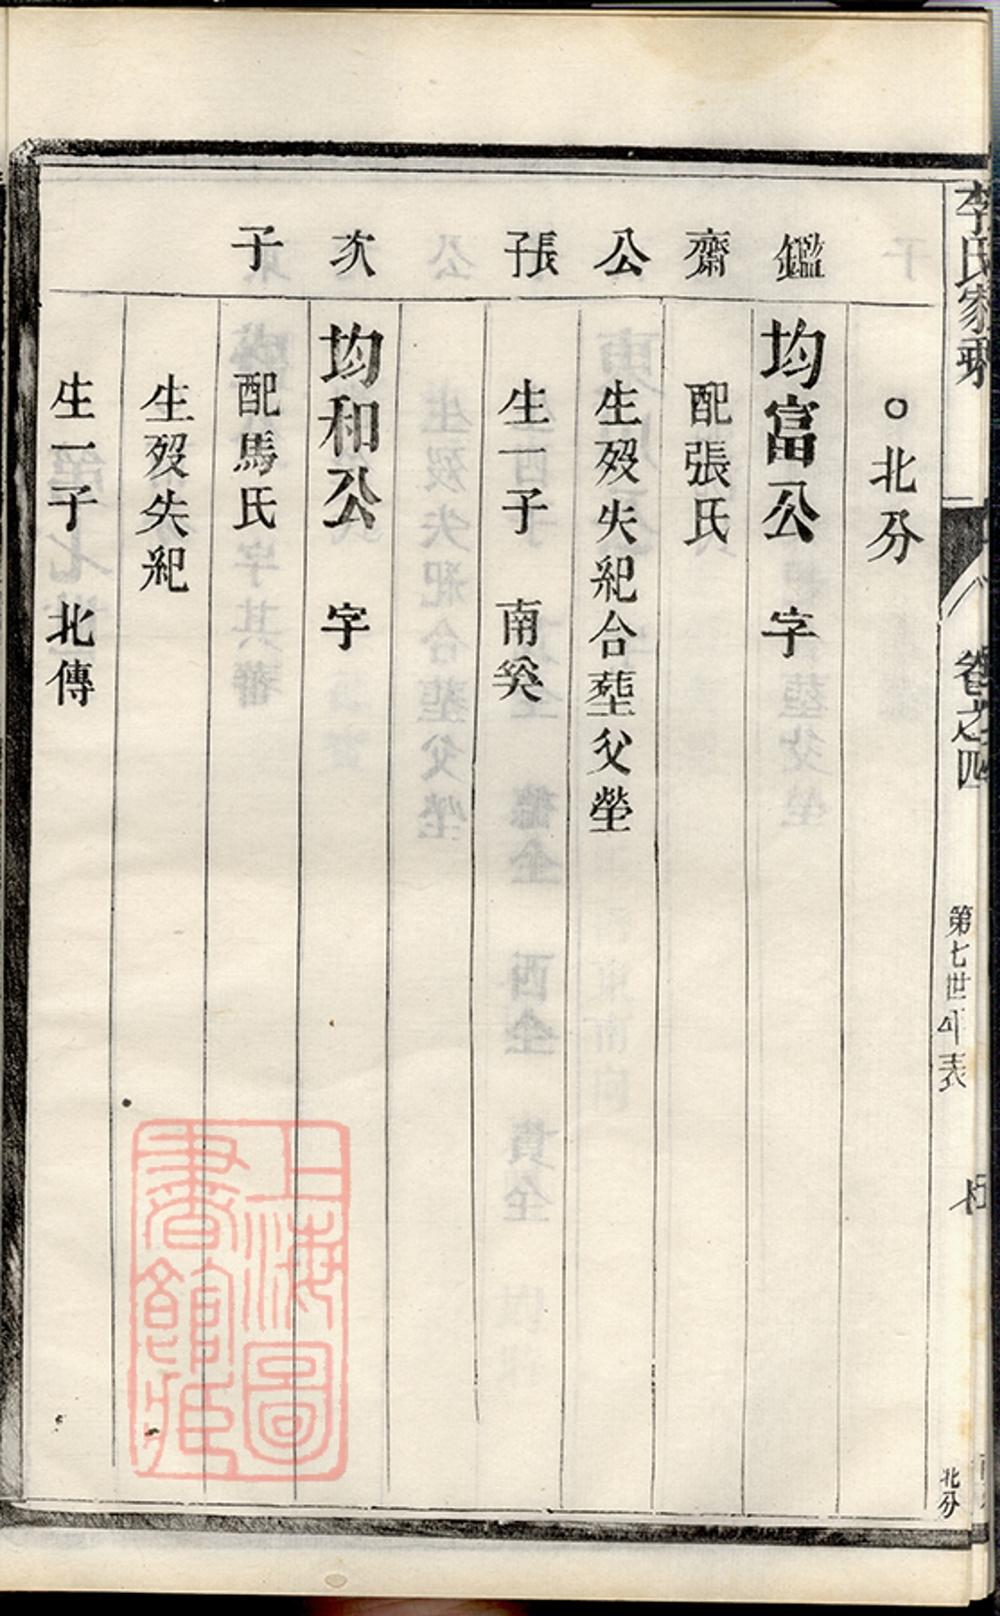 李氏家乘 卷之四 第七世年表 七 北分
○北分
鑑 均富公 字
齋 配張氏
公 生歿失紀合塟父塋
長子 生一子 南奚
次 均和公 字
子 配馬氏
生歿失紀
生一子 北傳
上海圖
書館藏